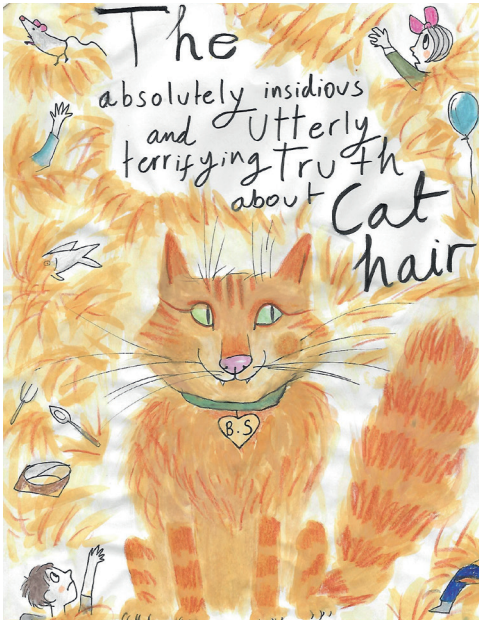 The
absolutely insidious
and Utterly
terrifying Truth
about Cat
hair
B.S